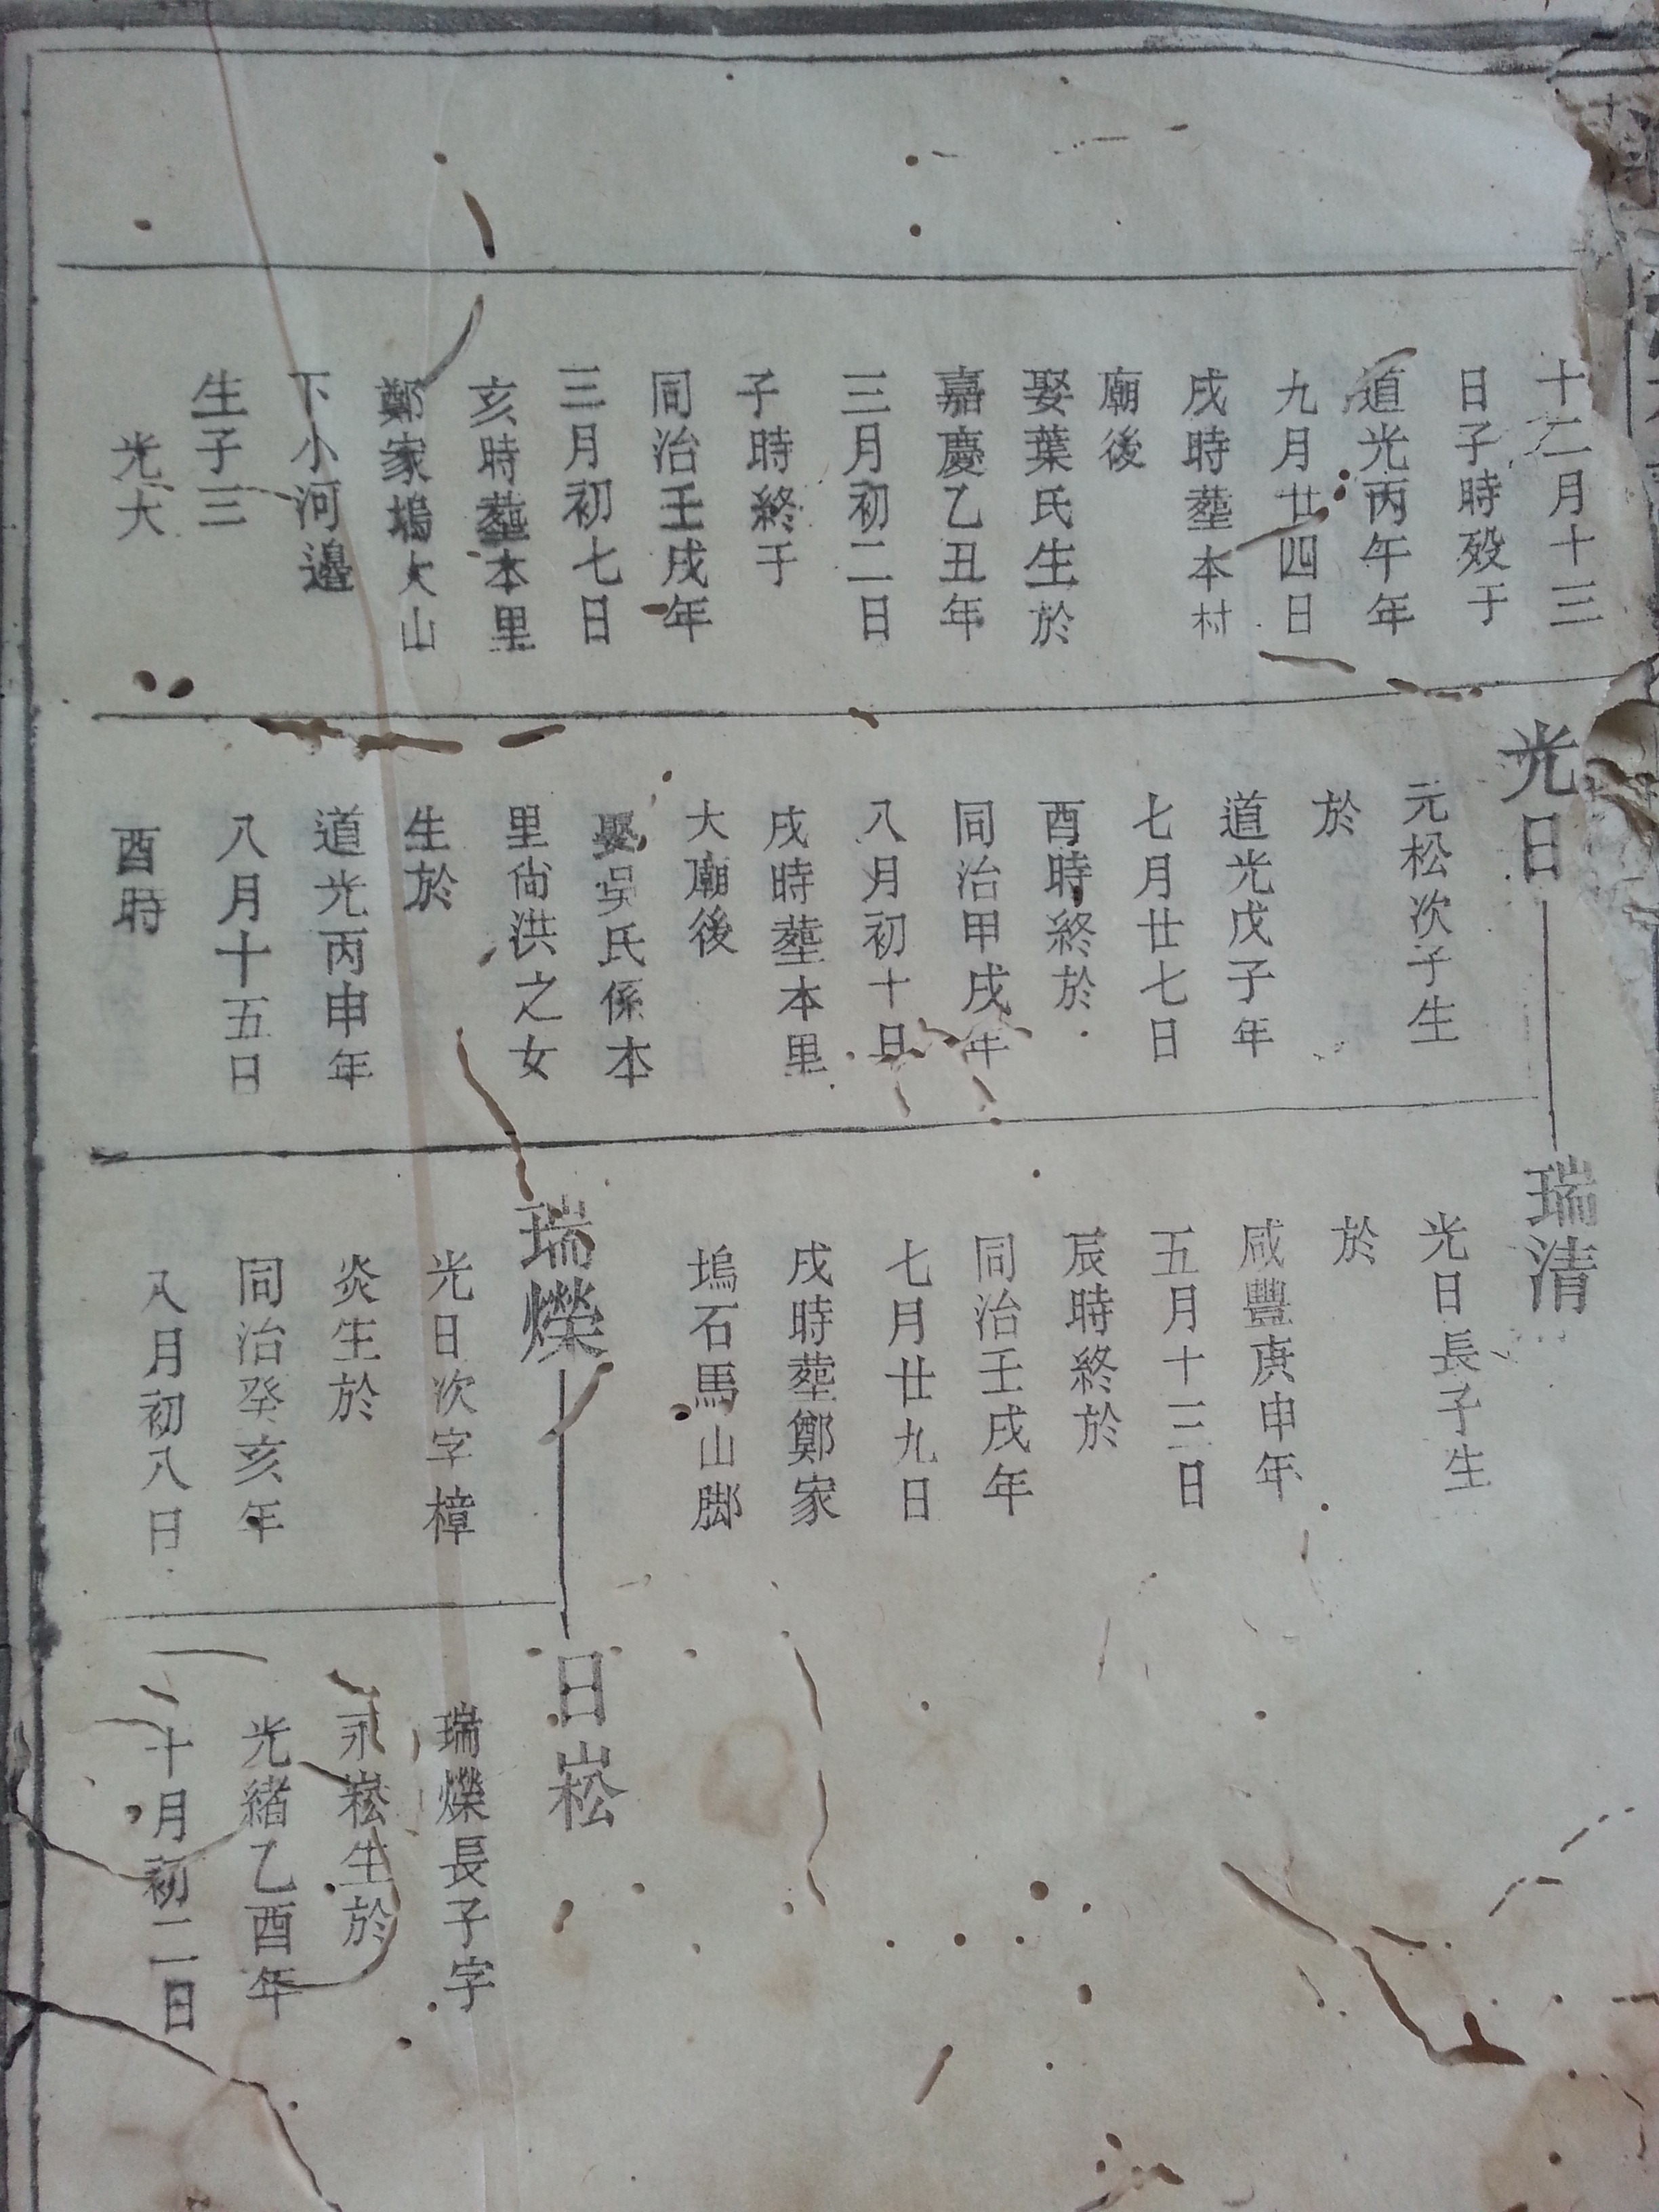 十二月十三
日子時殁于
道光丙午年
九月廿四日
戌時塟本村
廟後
娶葉氏生於
嘉慶乙丑年
三月初二日
子時終于
同治壬戌年
三月初七日
亥時塟本里
鄭家塢大山
下小河邉
生子三
光大
光日
元松次子生
於
道光戊子年
七月廿七日
酉時終於
同治甲戌年
八月初十日
戌時塟本里
大廟後
娶吳氏係本
里尙洪之女
生於
道光丙申年
八月十五日
酉時
瑞清
光日長子生
於
咸豐庚申年
五月十三日
辰時終於
同治壬戌年
七月廿九日
戌時塟鄭家
塢石馬山脚
瑞爃
光日次字樟
炎生於
同治癸亥年
八月初八日
日崧
瑞爃長子字
永崧生於
光緒乙酉年
十月初二日